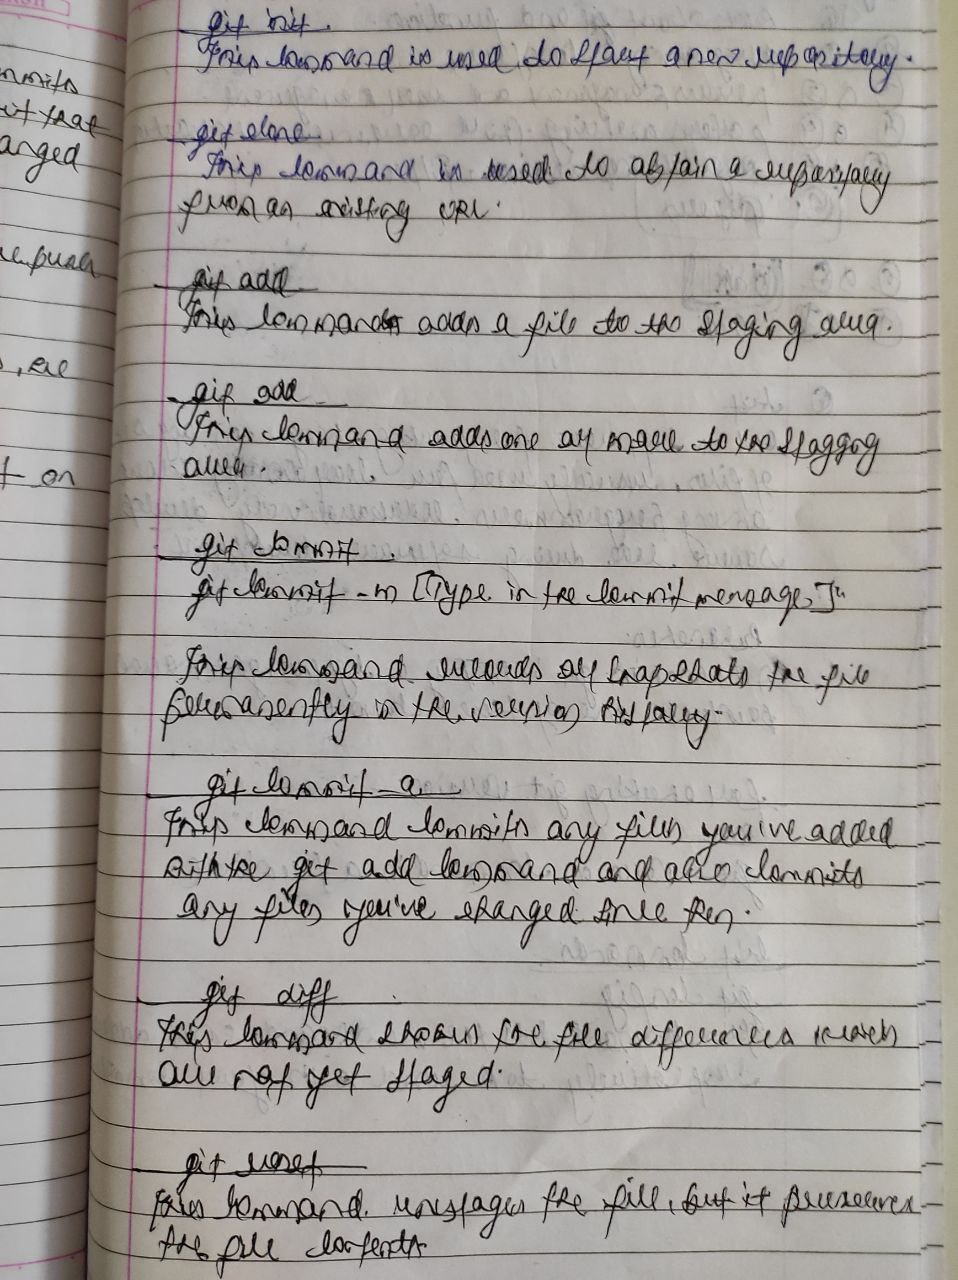 mmits
it that
anged
e push
, etc
t on
git init
This command is used to start a new repository.
git clone
This command is used to obtain a repository
from an existing URL.
git add
This command adds a file to the staging area.
git add
This command adds one or more to the stagging
area.
git commit
git commit -m [Type in the commit message]"
This command records or snapshots the file
permanently in the version history.
git commit -a
This command commits any files you've added
with the git add command and also commits
any files you've changed since then.
git diff
This command shows the file differences which
are not yet staged.
git reset
This command unstages the file, but it preserves
the file contents